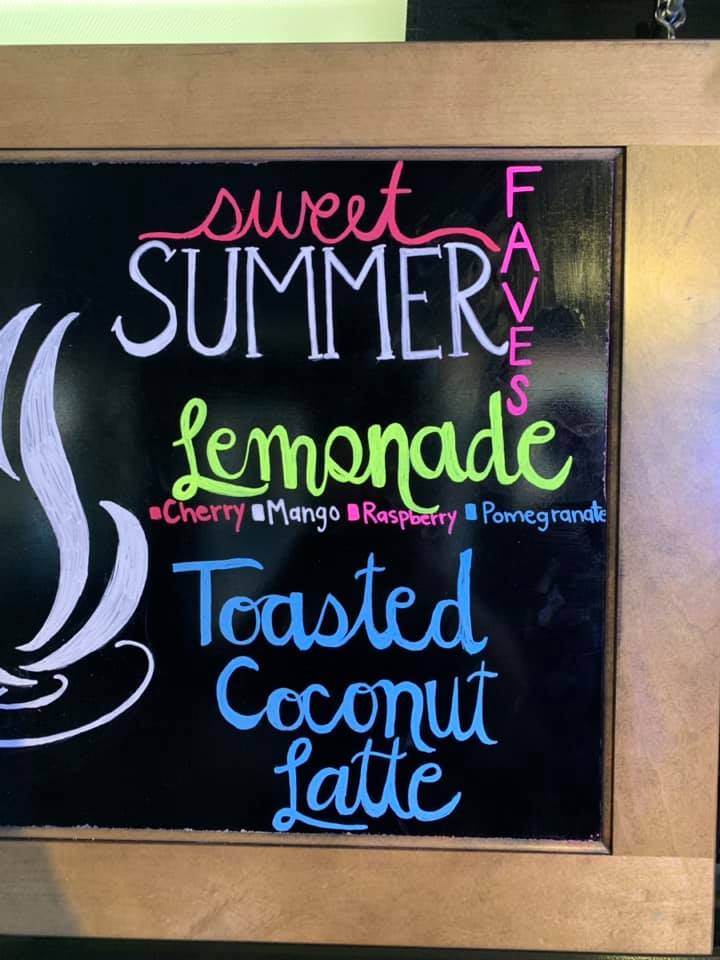 sweet
SUMMER
FAVES
Lemonade
Cherry Mango Raspberry Pomegranate
Toasted
Coconut
Latte